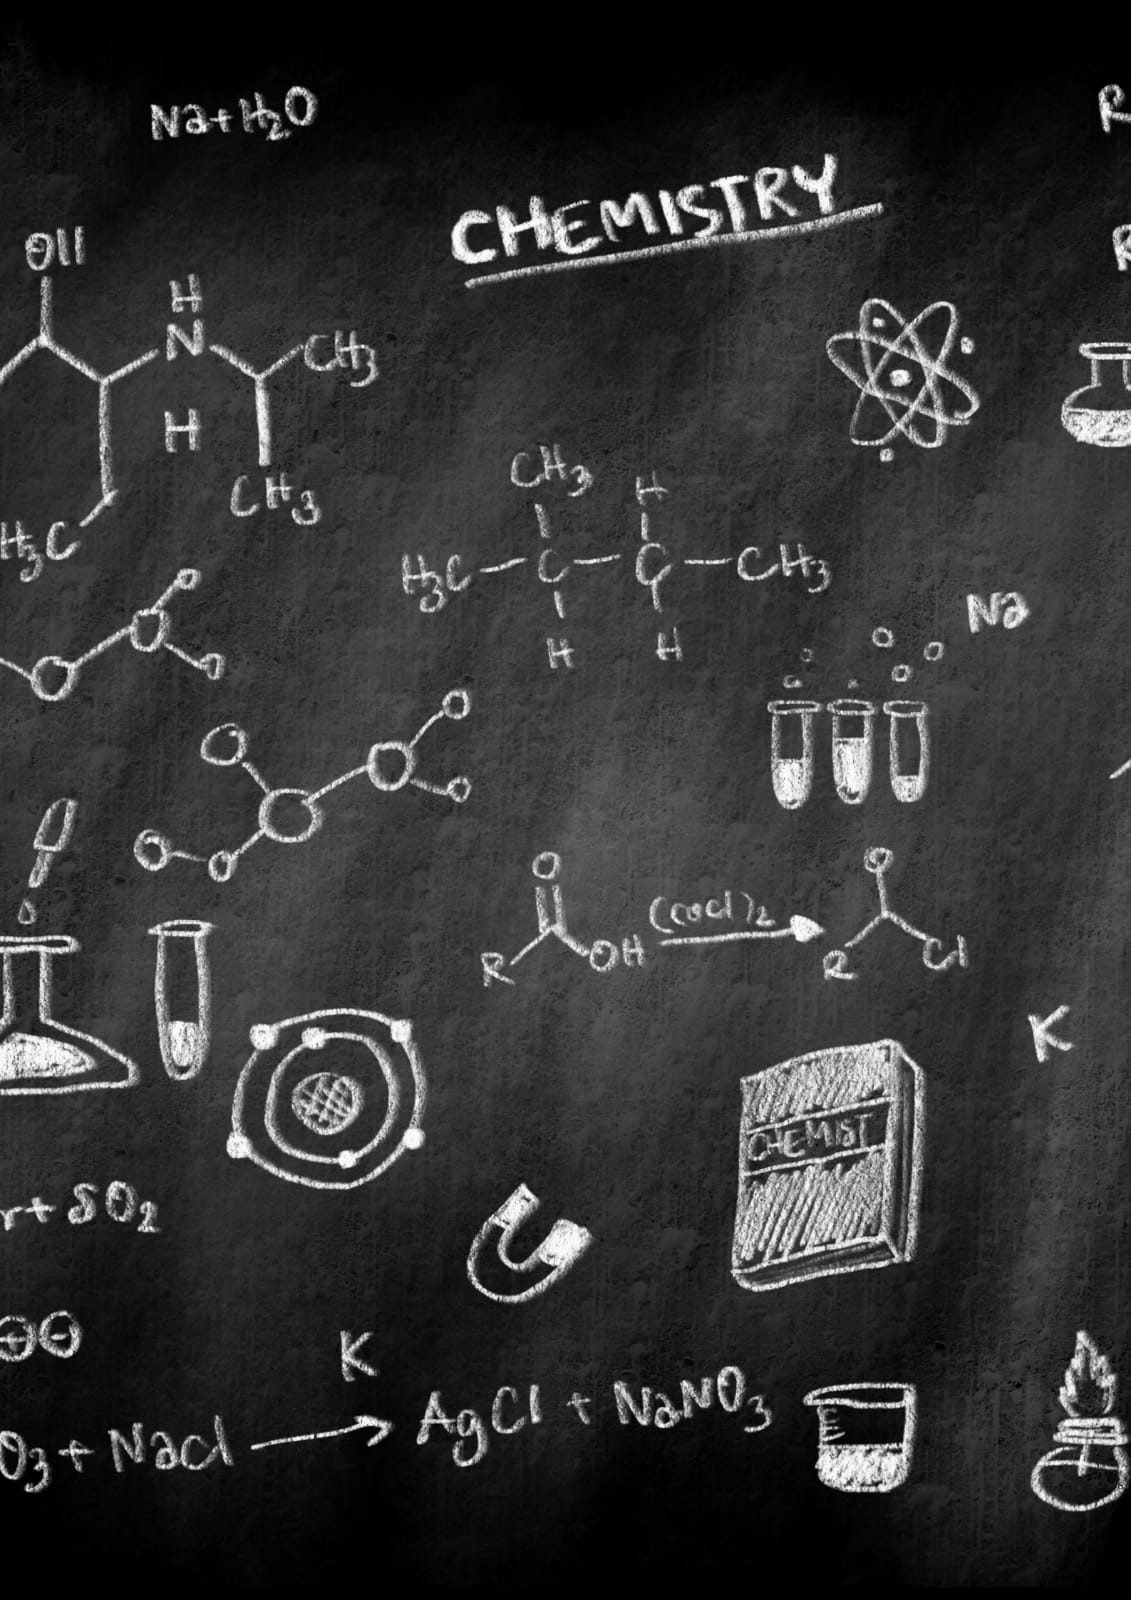 Na+H₂O
R
CHEMISTRY
R
OH
H
N
CH₃
H
CH₃
H₃C
CH₃
H
H₃C-C-C-CH₃
H
H
Na
O
R
OH
(COCl)₂
O
R
Cl
K
CHEMIST
r+SO₂
⊕⊖
K
O₃+NaCl → AgCl + NaNO₃